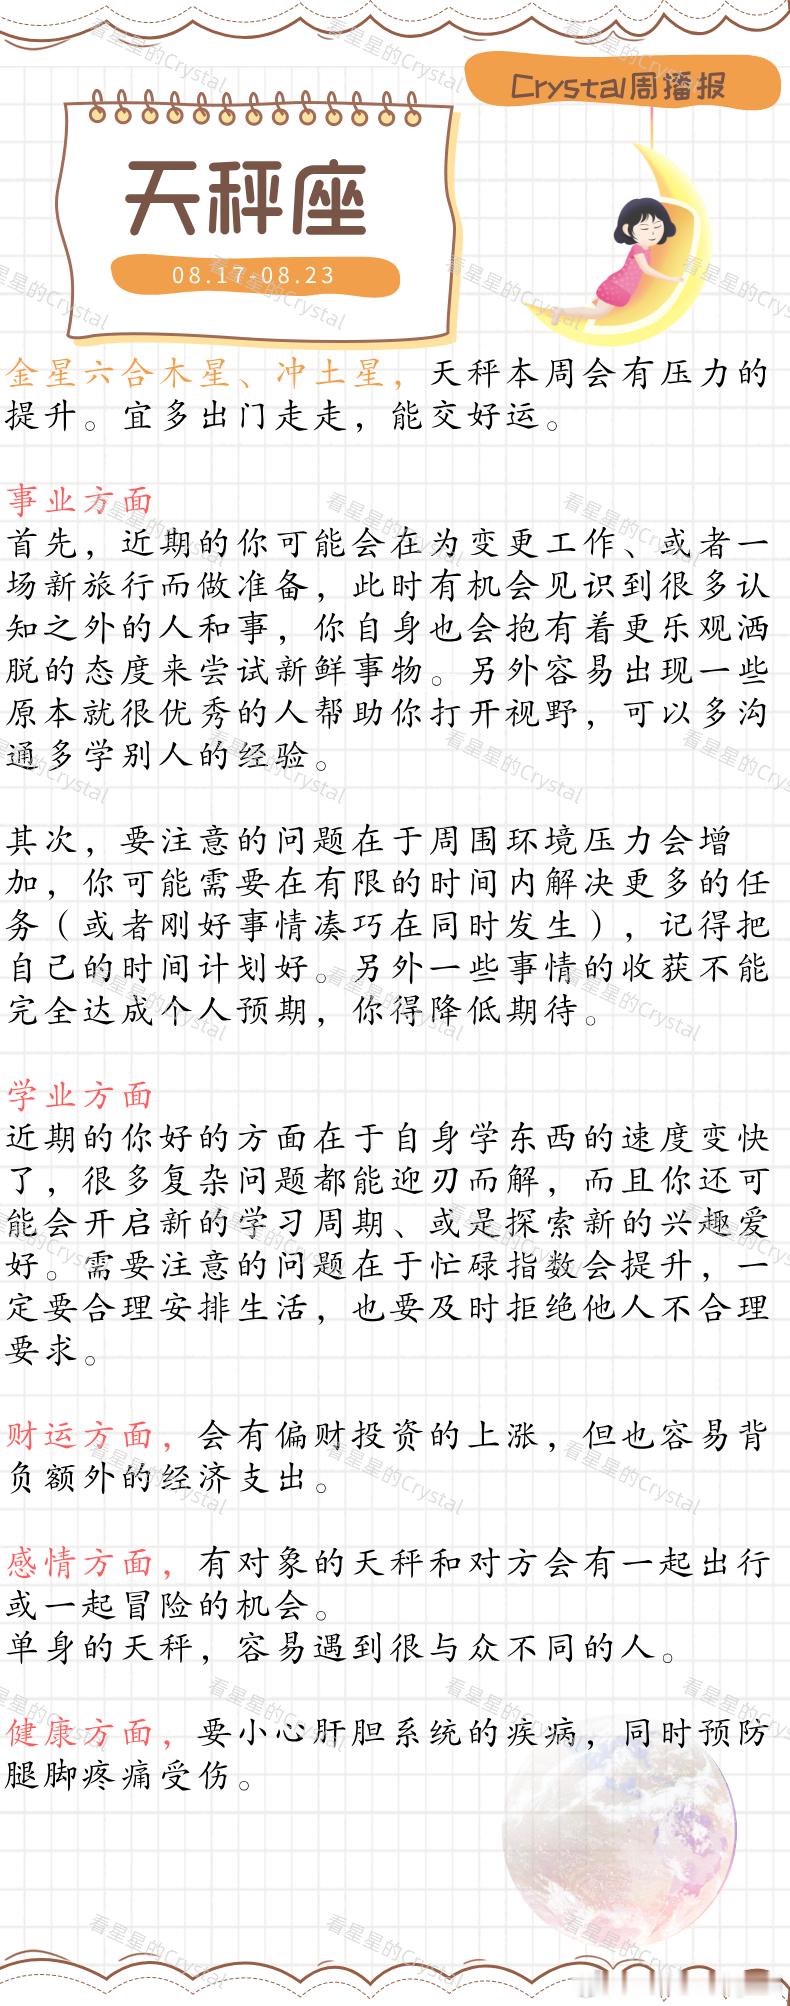 Crystal周播报
天秤座
08.17-08.23
金星六合木星、冲土星，天秤本周会有压力的
提升。宜多出门走走，能交好运。
事业方面
首先，近期的你可能会在为变更工作、或者一
场新旅行而做准备，此时有机会见识到很多认
知之外的人和事，你自身也会抱有着更乐观洒
脱的态度来尝试新鲜事物。另外容易出现一些
原本就很优秀的人帮助你打开视野，可以多沟
通多学别人的经验。
其次，要注意的问题在于周围环境压力会增
加，你可能需要在有限的时间内解决更多的任
务（或者刚好事情凑巧在同时发生），记得把
自己的时间计划好。另外一些事情的收获不能
完全达成个人预期，你得降低期待。
学业方面
近期的你好的方面在于自身学东西的速度变快
了，很多复杂问题都能迎刃而解，而且你还可
能会开启新的学习周期、或是探索新的兴趣爱
好。需要注意的问题在于忙碌指数会提升，一
定要合理安排生活，也要及时拒绝他人不合理
要求。
财运方面，会有偏财投资的上涨，但也容易背
负额外的经济支出。
感情方面，有对象的天秤和对方会有一起出行
或一起冒险的机会。
单身的天秤，容易遇到很与众不同的人。
健康方面，要小心肝胆系统的疾病，同时预防
腿脚疼痛受伤。
看星星的Crystal